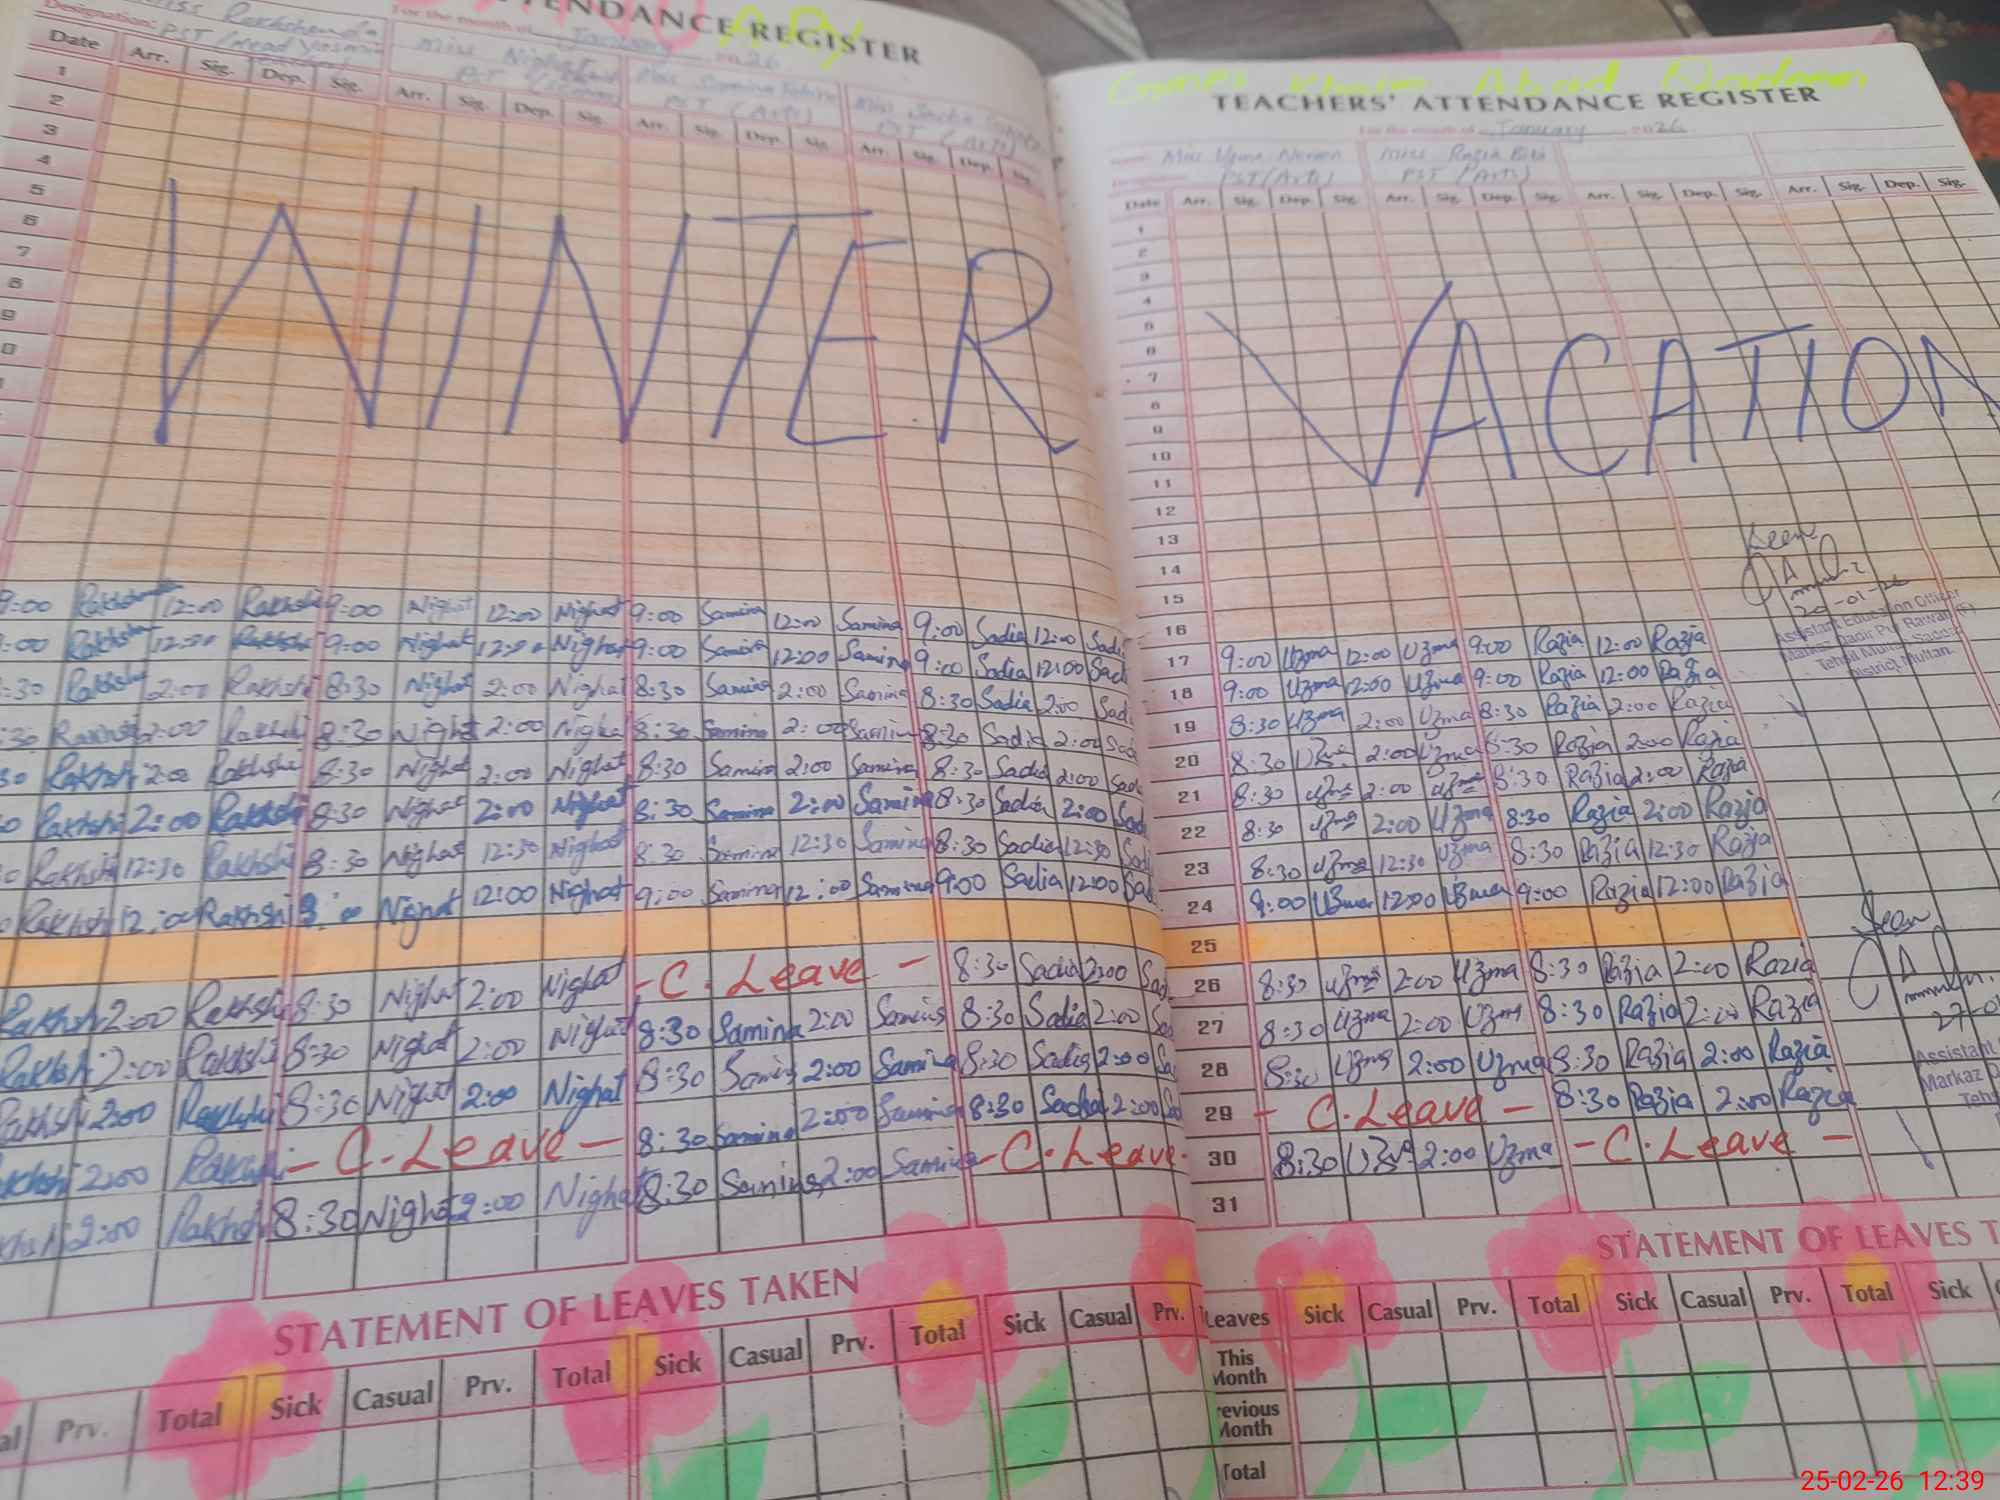 ATTENDANCE REGISTER
For the month of January 2026
Miss Rakhshenda
Designation: PST / Head
Miss Nighat
PST (Science)
Miss Samina
PST (Arts)
Miss Sadia
PST (Arts)
Date Arr. Sig. Dep. Sig. Arr. Sig. Dep. Sig. Arr. Sig. Dep. Sig. Arr. Sig. Dep.
1
2
3
4
5
6
7
8
9
WINTER
9:00 Rakhshi 12:00 Rakhshi 9:00 Nighat 12:00 Nighat 9:00 Samina 12:00 Samina 9:00 Sadia 12:00 Sadi
:00 Rakhshi 12:00 Rakhshi 9:00 Nighat 12:00 Nighat 9:00 Samina 12:00 Samina 9:00 Sadia 12:00 Sad
:30 Rakhshi 2:00 Rakhshi 8:30 Nighat 2:00 Nighat 8:30 Samina 2:00 Samina 8:30 Sadia 2:00 Sad
:30 Rakhshi 2:00 Rakhshi 8:30 Nighat 2:00 Nighat 8:30 Samina 2:00 Samina 8:30 Sadia 2:00 Sad
30 Rakhshi 2:00 Rakhshi 8:30 Nighat 2:00 Nighat 8:30 Samina 2:00 Samina 8:30 Sadia 2:00 Sad
0 Rakhshi 2:00 Rakhshi 8:30 Nighat 2:00 Nighat 8:30 Samina 2:00 Samina 8:30 Sadia 2:00 Sad
0 Rakhshi 12:30 Rakhshi 8:30 Nighat 12:30 Nighat 8:30 Samina 12:30 Samina 8:30 Sadia 12:30 Sadi
0 Rakhshi 12:00 Rakhshi Nighat 12:00 Nighat 9:00 Samina 12:00 Samina 9:00 Sadia 12:00 Sad
Rakhshi 2:00 Rakhshi 8:30 Nighat 2:00 Nighat - C. Leave - 8:30 Sadia 2:00 Sad
Rakhshi 2:00 Rakhshi 8:30 Nighat 2:00 Nighat 8:30 Samina 2:00 Samina 8:30 Sadia 2:00 Sa
Rakhshi 2:00 Rakhshi 8:30 Nighat 2:00 Nighat 8:30 Samina 2:00 Samina 8:30 Sadia 2:00 Sa
khshi 2:00 Rakhshi - C. Leave - 8:30 Samina 2:00 Samina 8:30 Sadia 2:00 Sa
khshi 2:00 Rakhshi 8:30 Nighat 2:00 Nighat 8:30 Samina 2:00 Samina - C. Leave
STATEMENT OF LEAVES TAKEN
al Prv. Total Sick Casual Prv. Total Sick Casual Prv. Total Sick Casual Prv.
TEACHERS' ATTENDANCE REGISTER
For the month of January 2026
Miss Uzma Miss Razia Bibi
PST (Arts) PST (Arts)
Date Arr. Sig. Dep. Sig. Arr. Sig. Dep. Sig. Arr. Sig. Dep. Sig. Arr. Sig. Dep. Sig.
1
2
3
4
5
6
7
8
9
10
11
12
13
14
15
16
VACATION
17 9:00 Uzma 12:00 Uzma 9:00 Razia 12:00 Razia
18 9:00 Uzma 12:00 Uzma 9:00 Razia 12:00 Razia
19 8:30 Uzma 2:00 Uzma 8:30 Razia 2:00 Razia
20 8:30 Uzma 2:00 Uzma 8:30 Razia 2:00 Razia
21 8:30 Uzma 2:00 Uzma 8:30 Razia 2:00 Razia
22 8:30 Uzma 2:00 Uzma 8:30 Razia 2:00 Razia
23 8:30 Uzma 12:30 Uzma 8:30 Razia 12:30 Razia
24 9:00 Uzma 12:00 Uzma 9:00 Razia 12:00 Razia
25
26 8:30 Uzma 2:00 Uzma 8:30 Razia 2:00 Razia
27 8:30 Uzma 2:00 Uzma 8:30 Razia 2:00 Razia
28 8:30 Uzma 2:00 Uzma 8:30 Razia 2:00 Razia
29 - C. Leave - 8:30 Razia 2:00 Razia
30 8:30 Uzma 2:00 Uzma - C. Leave -
31
20-01-26
Assistant Education Officer
Markaz Qadir Pur Rawan (F)
Tehsil Multan Saddar
District Multan.
27-0
Assistant
Markaz
Tehs
STATEMENT OF LEAVES T
Leaves Sick Casual Prv. Total Sick Casual Prv. Total Sick
This Month
revious Month
Total
25-02-26 12:39